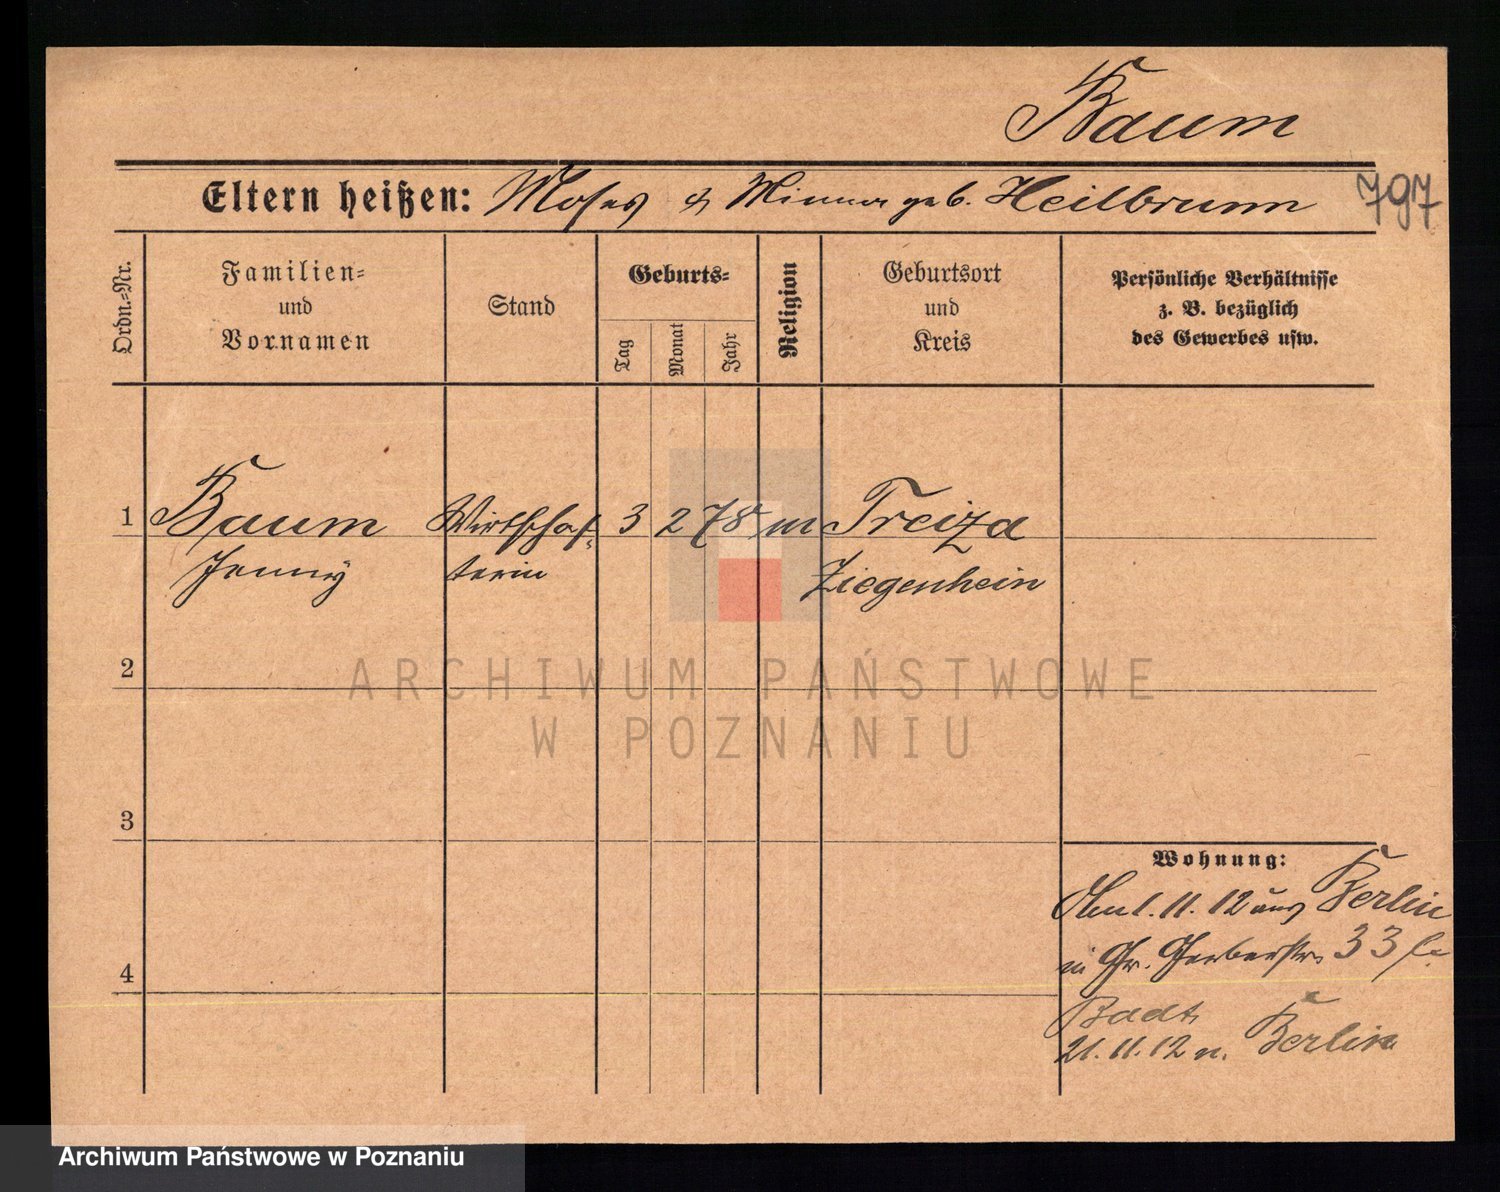 Baum
Eltern heißen: Moses & Minna geb. Heilbrunn 797
Ordn.=Nr.
Familien=
und
Vornamen
Stand
Geburts=
Tag
Monat
Jahr
Religion
Geburtsort
und
Kreis
Persönliche Verhältnisse
z. B. bezüglich
des Gewerbes usw.
1 Baum Wirtschaf= 3 2 78 m Treiza
Jenny terin Ziegenhein
2
ARCHIWUM PAŃSTWOWE
W POZNANIU
3
Wohnung:
1. 11. 12 aus Berlin
in Gr. Gerberstr. 33
4
Badt.
21. 11. 12 n. Berlin
Archiwum Państwowe w Poznaniu